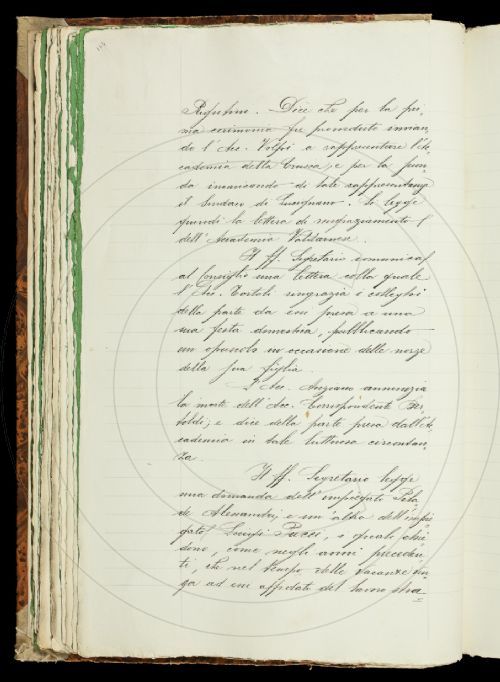 Rufichino. Dice che per la pri-
ma cerimonia fu provveduto invian-
do l'Acc. Volpi a rappresentare l'Ac-
cademia della Crusca, e per la secon-
da incaricando di tale rappresentanza
il Sindaco di Lucignano. Si legge
quindi la lettera di ringraziamento
dell'Accademia Valdarnese.
Il ff. Segretario comunica
al Consiglio una lettera colla quale
l'Acc. Tortoli ringrazia i colleghi
della parte da essi presa a una
sua festa domestica, pubblicando
un opuscolo in occasione delle nozze
della sua figlia.
L'Acc. Anziano annunzia
la morte dell'Acc. Corrispondente Ber-
toldi; e dice della parte presa dall'Ac-
cademia in tale luttuosa circostan-
za.
Il ff. Segretario legge
una dimanda dell'impiegato
de Alexandris e un'altra dell'impie-
gato Luigi Pacci, i quali chie-
dono, come negli anni preceden-
ti, che nel tempo delle vacanze ven-
ga ad essi affidato del lavoro stra-